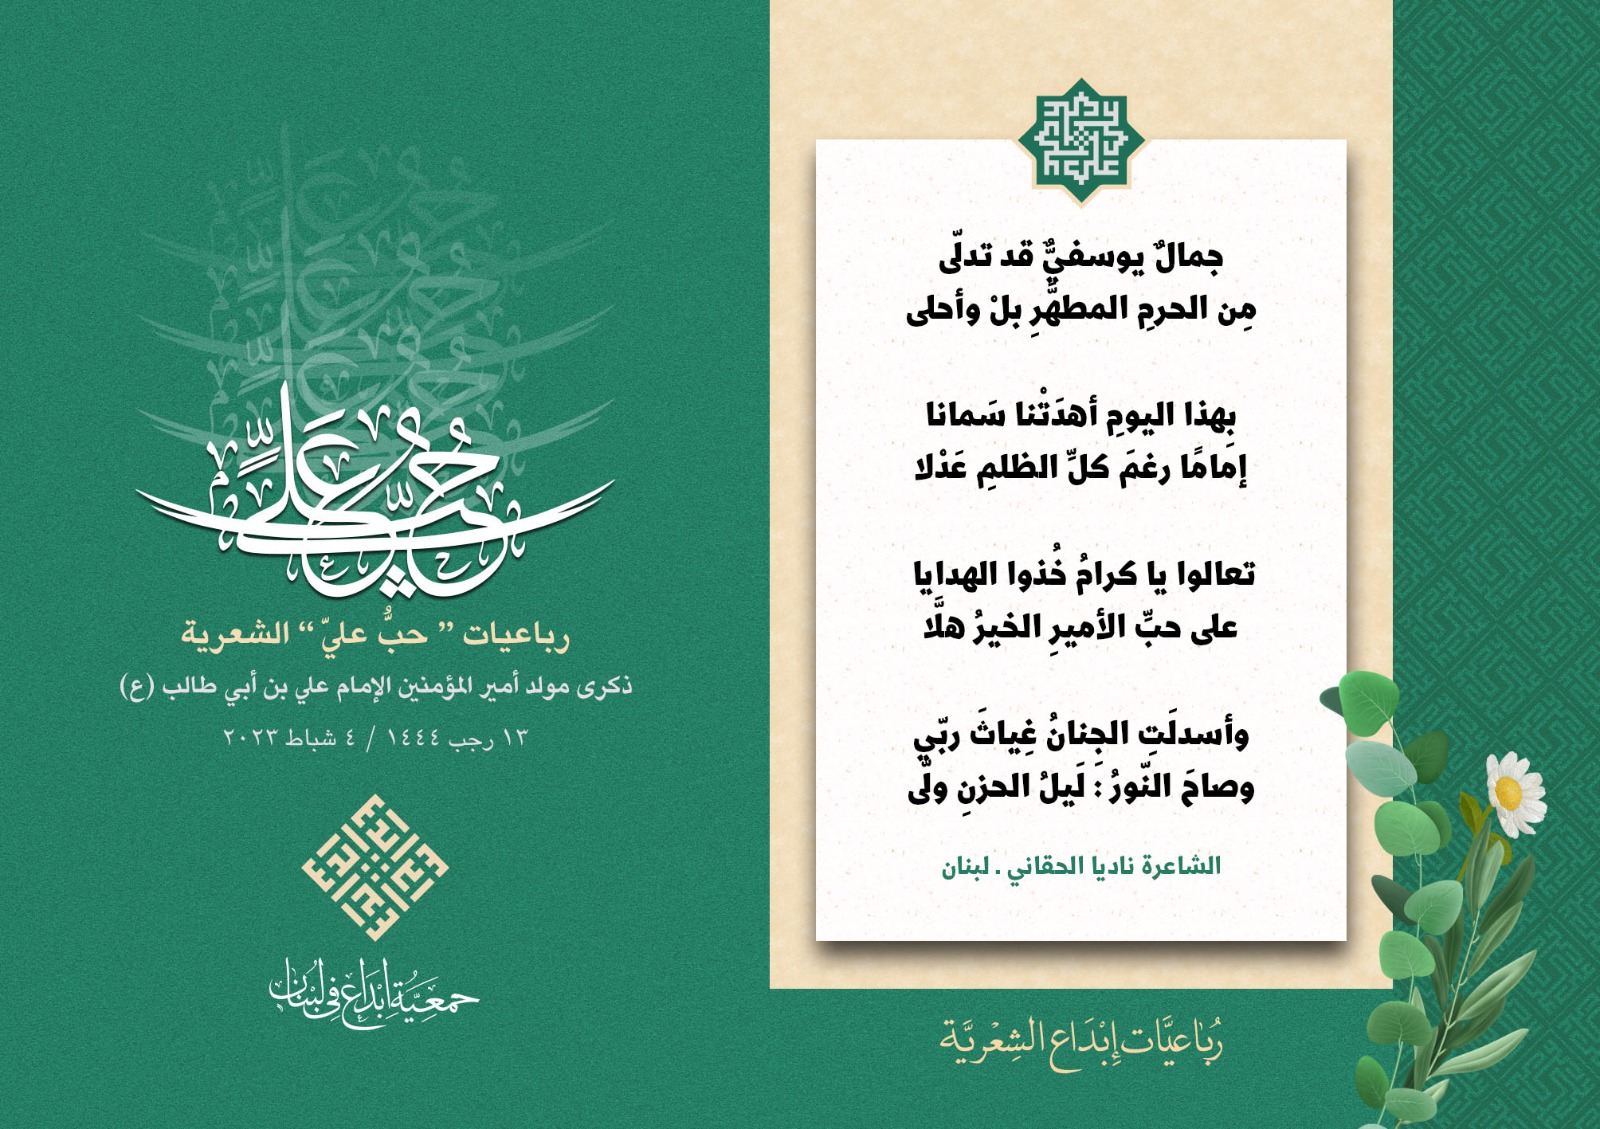 جمالٌ يوسفيٌّ قد تدلّى
مِن الحرمِ المطهَّرِ بلْ وأحلى
بِهذا اليومِ أهدَتْنا سَمانا
إمَامًا رغمَ كلِّ الظلمِ عَدْلا
تعالوا يا كرامُ خُذوا الهدايا
على حبِّ الأميرِ الخيرُ هلَّا
وأسدلَتِ الجِنانُ غِياثَ ربّي
وصاحَ النّورُ : لَيلُ الحزنِ ولّى
الشاعرة ناديا الحقاني . لبنان
رُبَاعيَّات إِبْدَاع الشِعْريَّة
حُبُّ عَلِيٍّ
رباعيات ” حبُّ عليّ “ الشعرية
ذكرى مولد أمير المؤمنين الإمام علي بن أبي طالب (ع)
١٣ رجب ١٤٤٤ / ٤ شباط ٢٠٢٣
جمعيّة إبْدَاع في لبْنان